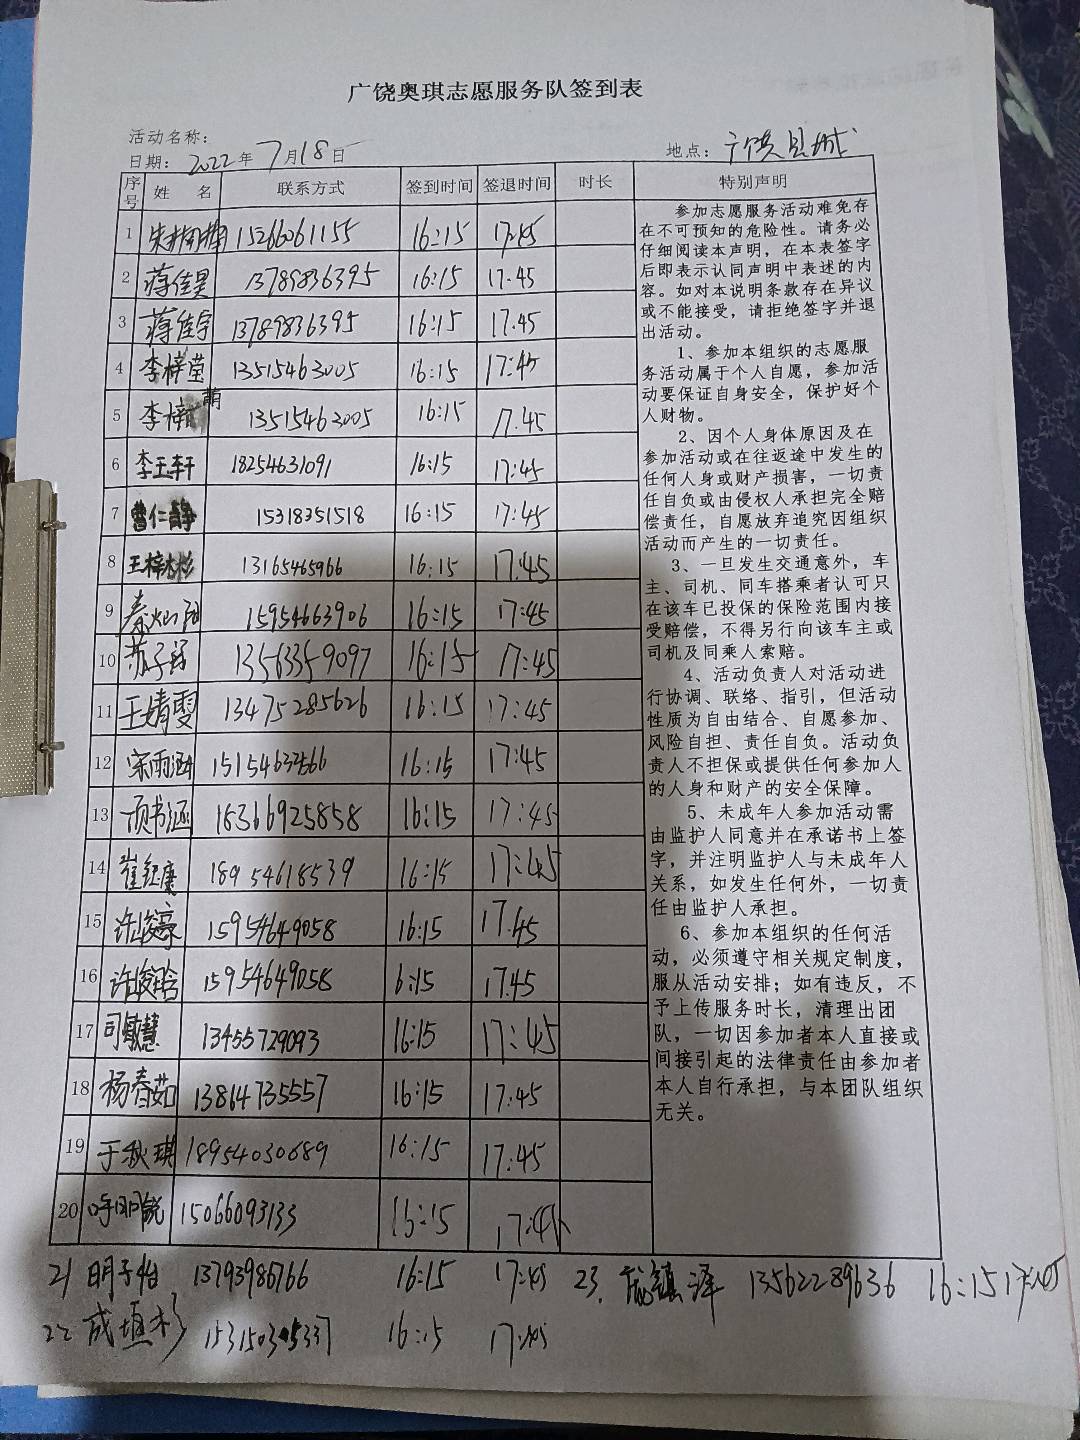 广饶奥琪志愿服务队签到表
活动名称：
日期：2022年7月18日 地点：广饶县城
序号 姓 名 联系方式 签到时间 签退时间 时长 特别声明
1 15266061155 16:15 17:45
2 蒋佳昊 13789836395 16:15 17.45
3 蒋佳宇 13789836395 16:15 17.45
4 李梓莹 13515463005 16:15 17:45
5 李梓萌 13515463005 16:15 17.45
6 李玉轩 18254631091 16:15 17:45
7 曹仁静 15318351518 16:15 17:45
8 王梓彬 13165465966 16:15 17:45
9 秦灿阳 15954663906 16:15 17:45
10 苏子 13563359097 16:15 17:45
11 王婧雯 13475285626 16:15 17:45
12 宋雨涵 16:15 17:45
13 项书涵 15366925858 16:15 17:45
14 崔钰康 18954618539 16:15 17:45
15 许峻豪 15954649058 16:15 17.45
16 许峻晗 15954649058 6:15 17.45
17 司敏慧 13455729093 16:15 17:45
18 杨春茹 13864735557 16:15 17:45
19 于秋琪 18954030689 16:15 17:45
20 15066093133 16:15 17:45
21 明子怡 13793986766 16:15 17:45 23. 镇泽 13562289636 16:15 17:45
22 成垣杉 16:15 17:45
参加志愿服务活动难免存
在不可预知的危险性。请务必
仔细阅读本声明，在本表签字
后即表示认同声明中表述的内
容。如对本说明条款存在异议
或不能接受，请拒绝签字并退
出活动。
1、参加本组织的志愿服
务活动属于个人自愿，参加活
动要保证自身安全，保护好个
人财物。
2、因个人身体原因及在
参加活动或在往返途中发生的
任何人身或财产损害，一切责
任自负或由侵权人承担完全赔
偿责任，自愿放弃追究因组织
活动而产生的一切责任。
3、一旦发生交通意外，车
主、司机、同车搭乘者认可只
在该车已投保的保险范围内接
受赔偿，不得另行向该车主或
司机及同乘人索赔。
4、活动负责人对活动进
行协调、联络、指引，但活动
性质为自由结合、自愿参加、
风险自担、责任自负。活动负
责人不担保或提供任何参加人
的人身和财产的安全保障。
5、未成年人参加活动需
由监护人同意并在承诺书上签
字，并注明监护人与未成年人
关系，如发生任何外，一切责
任由监护人承担。
6、参加本组织的任何活
动，必须遵守相关规定制度，
服从活动安排；如有违反，不
予上传服务时长，清理出团
队，一切因参加者本人直接或
间接引起的法律责任由参加者
本人自行承担，与本团队组织
无关。